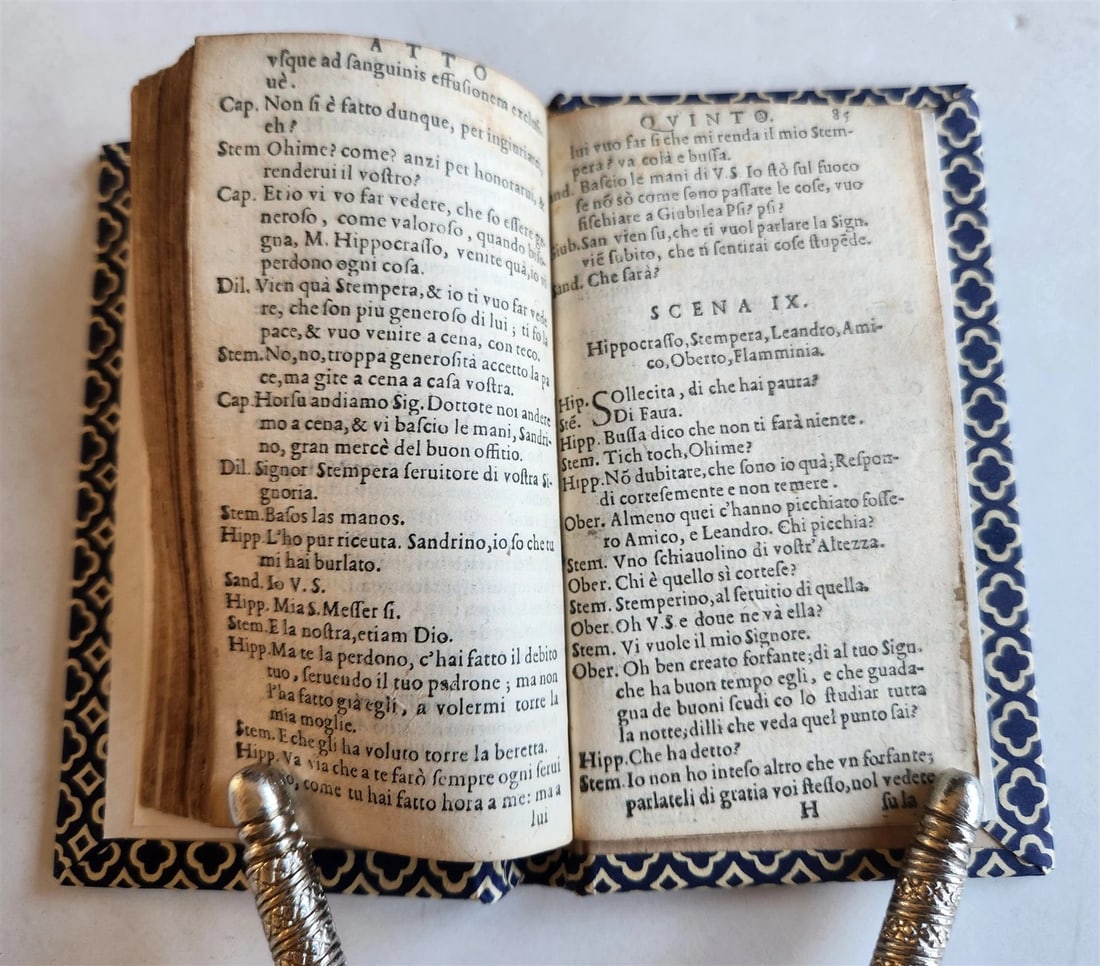 ATTO
vſque ad ſanguinis effuſionem
uè.
Cap. Non ſi è fatto dunque, per ingiuriarci,
eh?
Stem Ohime? come? anzi per honorarui, &
renderui il voſtro?
Cap. Et io vi vo far vedere, che ſo eſſere ge-
neroſo, come valoroſo, quando biſo-
gna, M. Hippocraſſo, venite quà, io vi
perdono ogni coſa.
Dil. Vien quà Stempera, & io ti vuo far vede
re, che ſon più generoſo di lui; ti fo la
pace, & vuo venire a cena, con teco.
Stem. No, no, troppa generoſità accetto la pa
ce, ma gite a cena a caſa voſtra.
Cap. Horſu andiamo Sig. Dottote noi andere
mo a cena, & vi baſcio le mani, Sandri-
no, gran mercè del buon offitio.
Dil. Signor Stempera ſeruitore di voſtra Si-
gnoria.
Stem. Baſos las manos.
Hipp. L'ho pur riceuta. Sandrino, io ſo che tu
mi hai burlato.
Sand. Io V. S.
Hipp. Mia S. Meſſer ſi.
Stem. E la noſtra, etiam Dio.
Hipp. Ma te la perdono, c'hai fatto il debito
tuo, ſeruendo il tuo padrone; ma non
l'ha fatto già egli, a volermi torre la
mia moglie.
Stem. E che gli ha voluto torre la beretta.
Hipp. Va via che a te farò ſempre ogni ſerui
come tu hai fatto hora a me: ma a
lui
QVINTO. 85
lui vuo far ſi che mi renda il mio Stem-
pera? va colà e buſſa.
Baſcio le mani di V. S. Io ſtò ſul fuoco
ſe nõ sò come ſono paſſate le coſe, vuo
fiſchiare a Giubilea Pſi? pſi?
Giub. San vien ſu, che ti vuol parlare la Sign.
viẽ ſubito, che ti ſentirai coſe ſtupẽde.
Sand. Che ſarà?
SCENA IX.
Hippocraſſo, Stempera, Leandro, Ami-
co, Oberto, Flamminia.
Hip. SOllecita, di che hai paura?
Stẽ. Di Faua.
Hipp. Buſſa dico che non ti farà niente.
Stem. Tich toch, Ohime?
Hipp. Nõ dubitare, che ſono io quà; Reſpon-
di corteſemente e non temere.
Ober. Almeno quei c'hanno picchiato foſſe-
ro Amico, e Leandro. Chi picchia?
Stem. Vno ſchiauolino di voſtr'Altezza.
Ober. Chi è quello sì corteſe?
Stem. Stemperino, al ſeruitio di quella.
Ober. Oh V. S. e doue ne và ella?
Stem. Vi vuole il mio Signore.
Ober. Oh ben creato forfante; di al tuo Sign.
che ha buon tempo egli, e che guada-
gna de buoni ſcudi co lo ſtudiar tutta
la notte; dilli che veda quel punto ſai?
Hipp. Che ha detto?
Stem. Io non ho inteſo altro che vn forfante;
parlateli di gratia voi ſteſſo, nol vedete
H ſu la